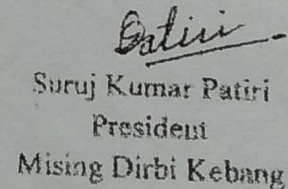 Patiri
Suruj Kumar Patiri
President
Mising Dirbi Kebang